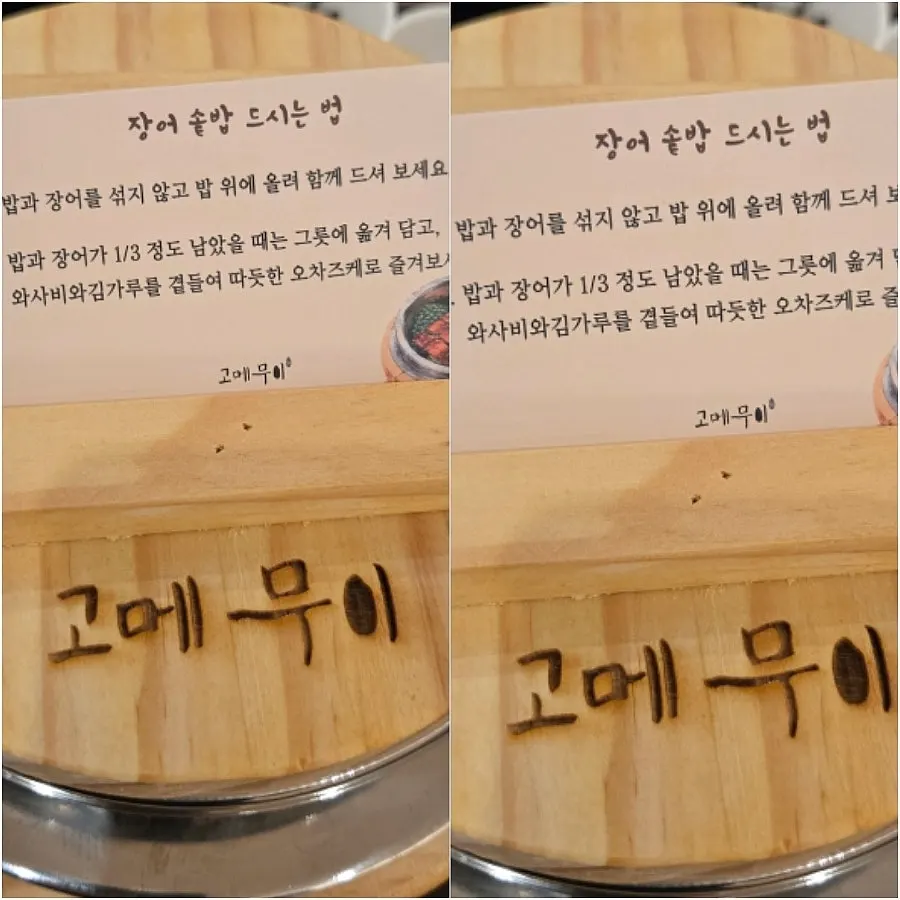 장어 솥밥 드시는 법
밥과 장어를 섞지 않고 밥 위에 올려 함께 드셔 보세요
밥과 장어가 1/3 정도 남았을 때는 그릇에 옮겨 담고,
와사비와김가루를 곁들여 따듯한 오차즈케로 즐겨보
고메무이
고메무이
장어 솥밥 드시는 법
밥과 장어를 섞지 않고 밥 위에 올려 함께 드셔
. 밥과 장어가 1/3 정도 남았을 때는 그릇에 옮겨
와사비와김가루를 곁들여 따듯한 오차즈케로
고메무이
고메무이